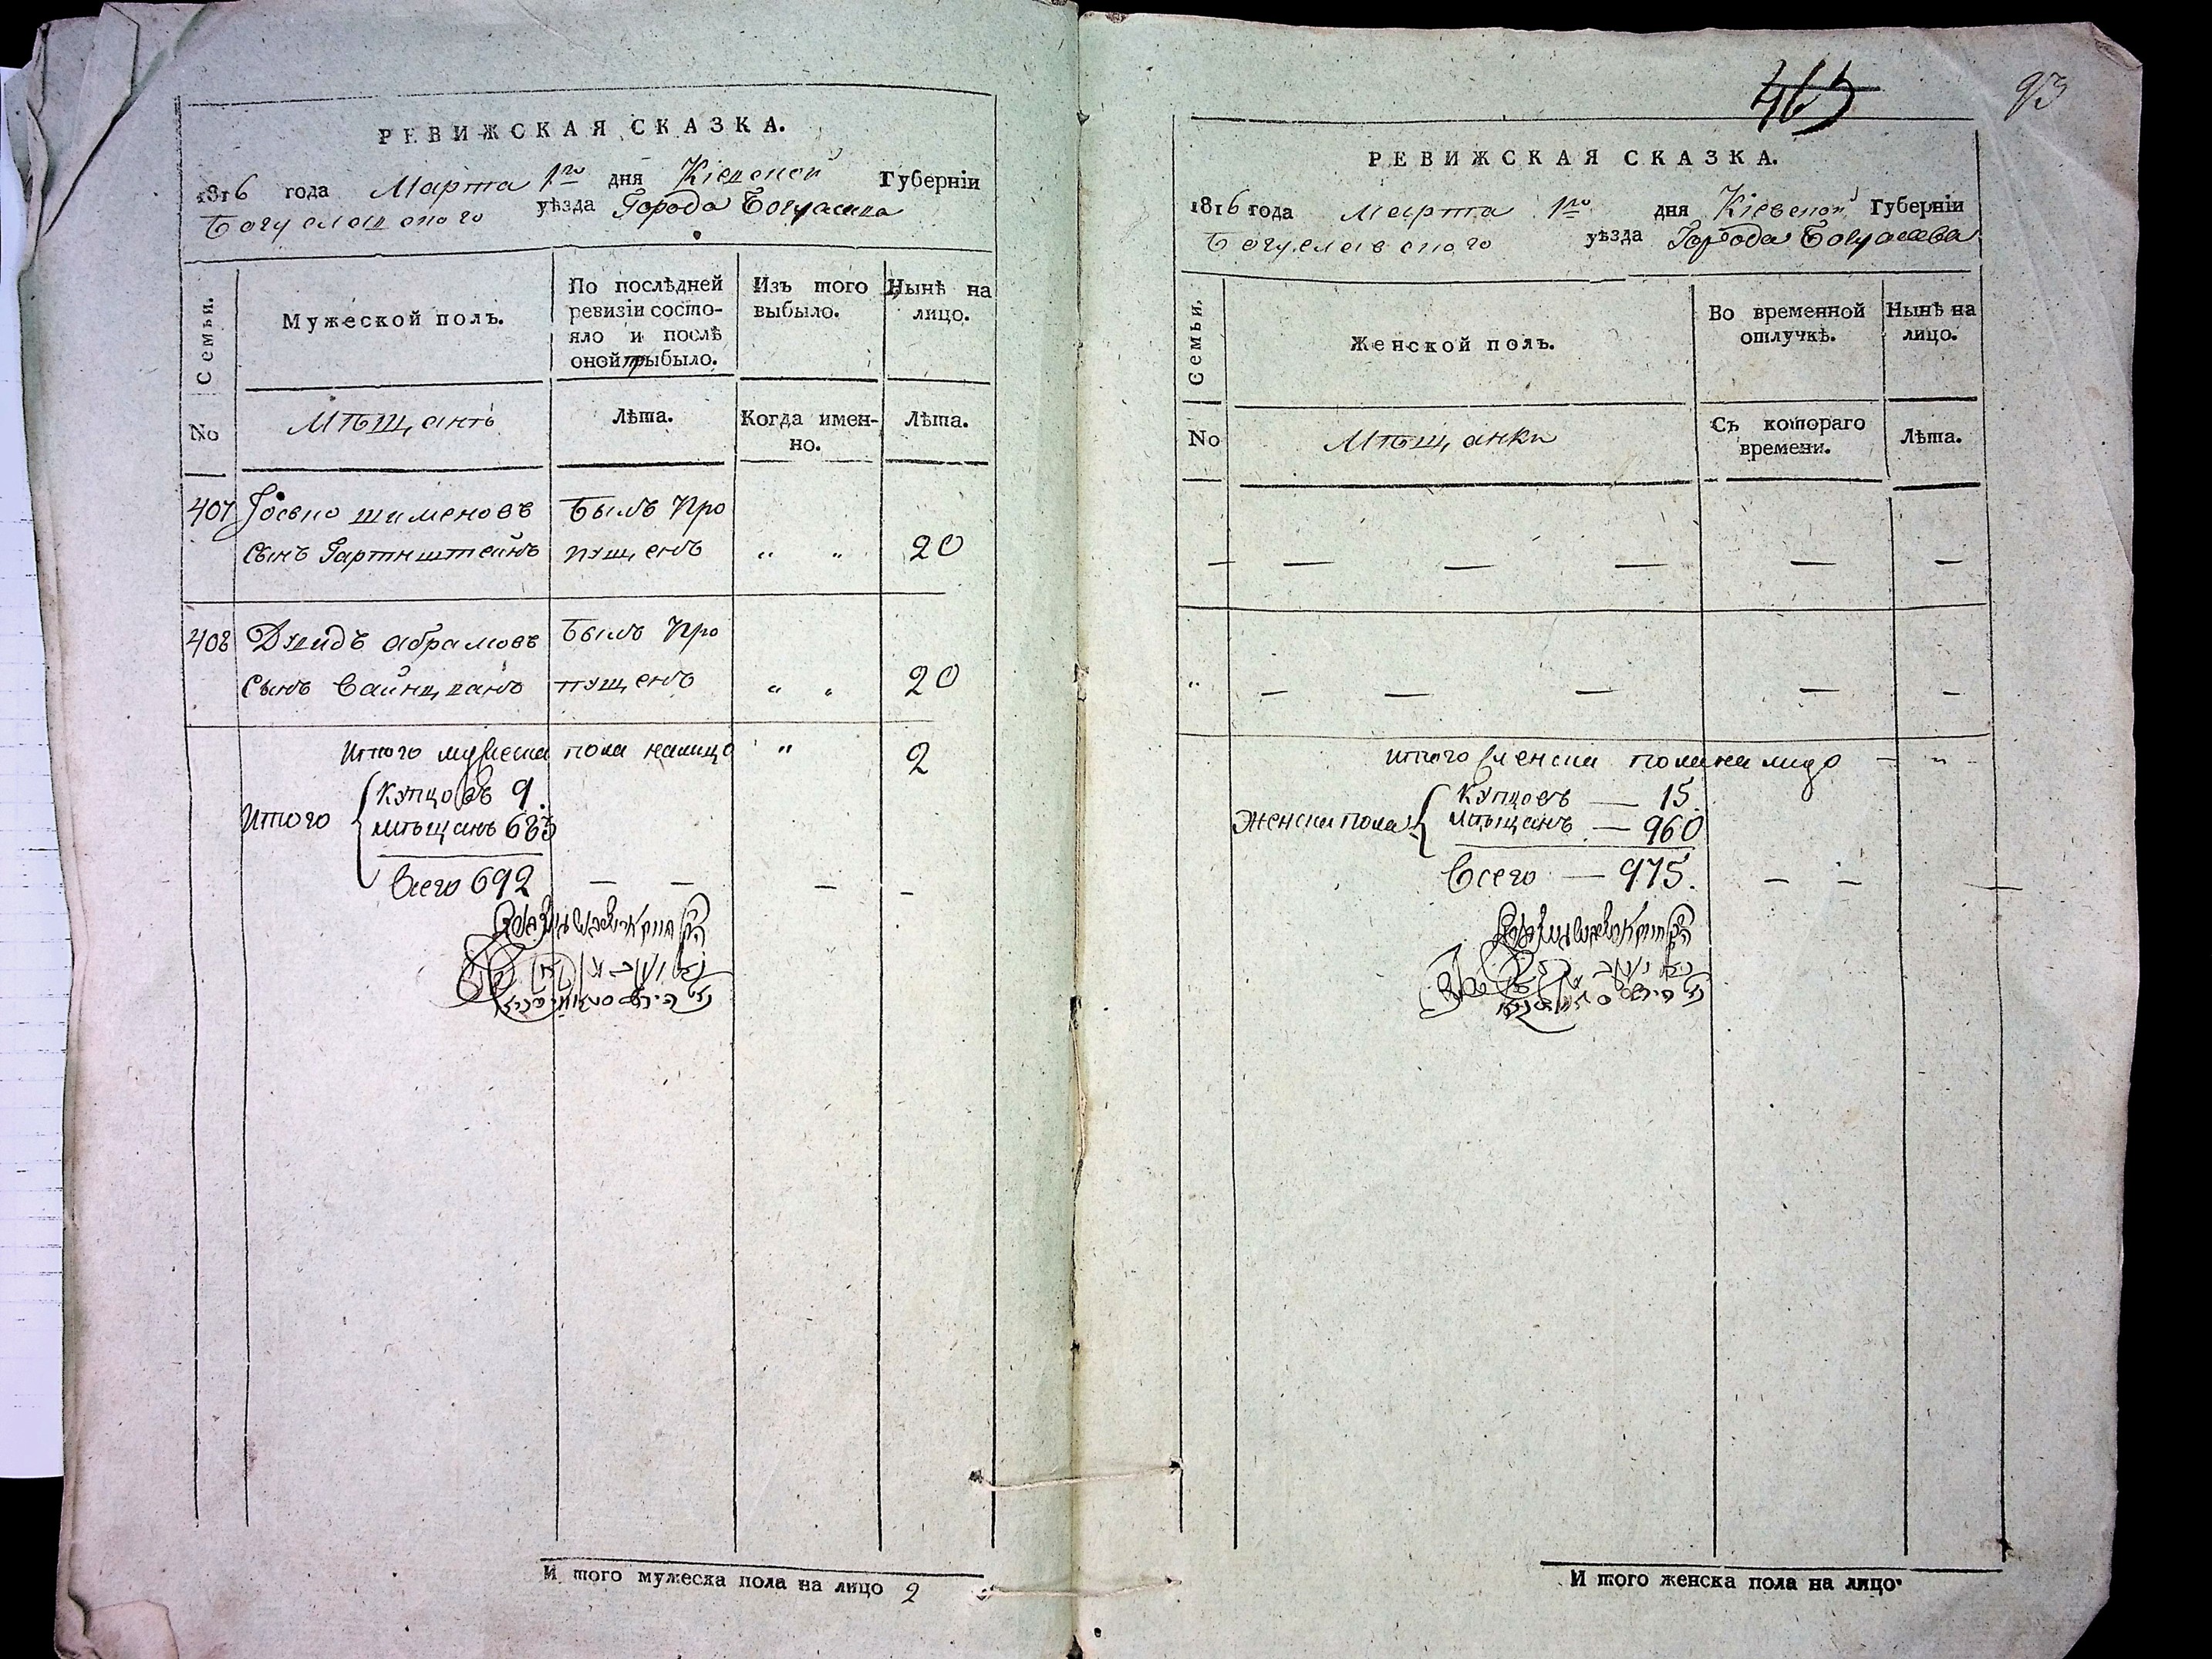 РЕВИЖСКАЯ СКАЗКА.
1816 года Марта 1го дня Кіевской Губерніи
Богуславского уѣзда Города Богуслава
Семьи.
Мужеской полъ.
По послѣдней
ревизіи состо-
яло и послѣ
оной прыбыло.
Изъ того
выбыло.
Нынѣ на
лицо.
No
Мѣщанъ
Лѣта.
Когда имен-
но.
Лѣта.
407 Іосько шимоновъ Былъ Про
сынъ Гартнштейнъ пущенъ „ „ 20
408 Духидъ абрамовъ Былъ Про
сынъ Вайнцванъ пущенъ „ „ 20
Итого мужеска пола налицо „ 2
Купцовъ 9.
Итого
мѣщанъ 683
Всего 692 — — — —
И того мужеска пола на лицо 2
465
93
РЕВИЖСКАЯ СКАЗКА.
1816 года Марта 1го дня Кіевской Губерніи
Богуславского уѣзда Города Богуслава
Семьи.
Женской полъ.
Во временной
отлучкѣ.
Нынѣ на
лицо.
No
Мѣщанки
Съ котораго
времени.
Лѣта.
— — — — — —
„ — — — — —
итого женска пола на лицо — „ -
Купцовъ — 15.
Женска пола
Мѣщанъ — 960
Всего — 975. — —
И того женска пола на лицо